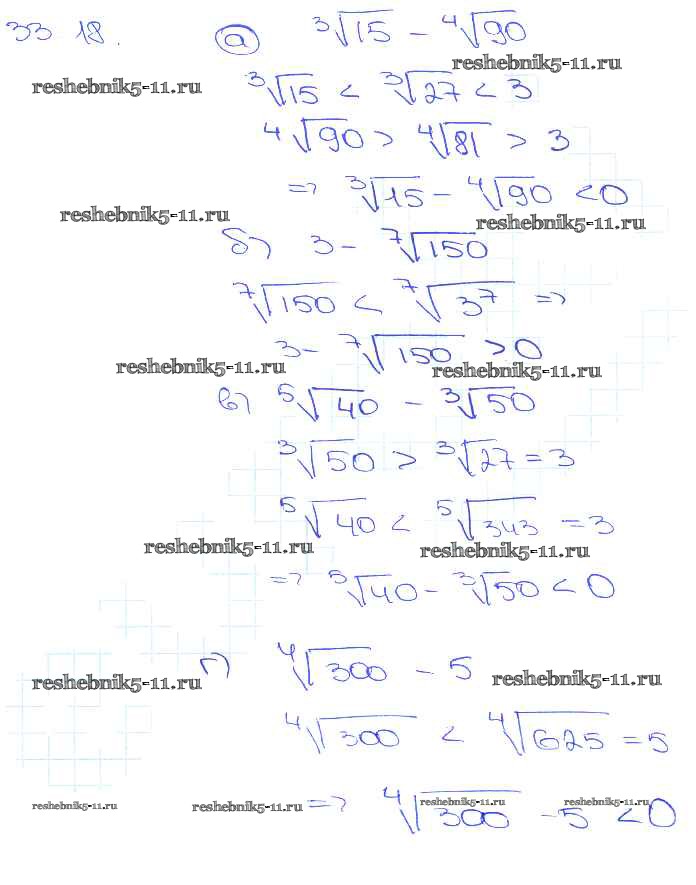 33 18. а) ∛15 − ∜90
reshebnik5-11.ru
reshebnik5-11.ru
∛15 < ∛27 < 3
∜90 > ∜81 > 3
=> ∛15 − ∜90 < 0
reshebnik5-11.ru
reshebnik5-11.ru
б) 3 − ⁷√150
⁷√150 < ⁷√3⁷ =>
3 − ⁷√150 > 0
reshebnik5-11.ru
reshebnik5-11.ru
в) ⁵√40 − ∛50
∛50 > ∛27 = 3
⁵√40 < ⁵√343 = 3
reshebnik5-11.ru
reshebnik5-11.ru
=> ⁵√40 − ∛50 < 0
г) ∜300 − 5
reshebnik5-11.ru
reshebnik5-11.ru
∜300 < ∜625 = 5
=> ∜300 − 5 < 0
reshebnik5-11.ru
reshebnik5-11.ru
reshebnik5-11.ru
reshebnik5-11.ru